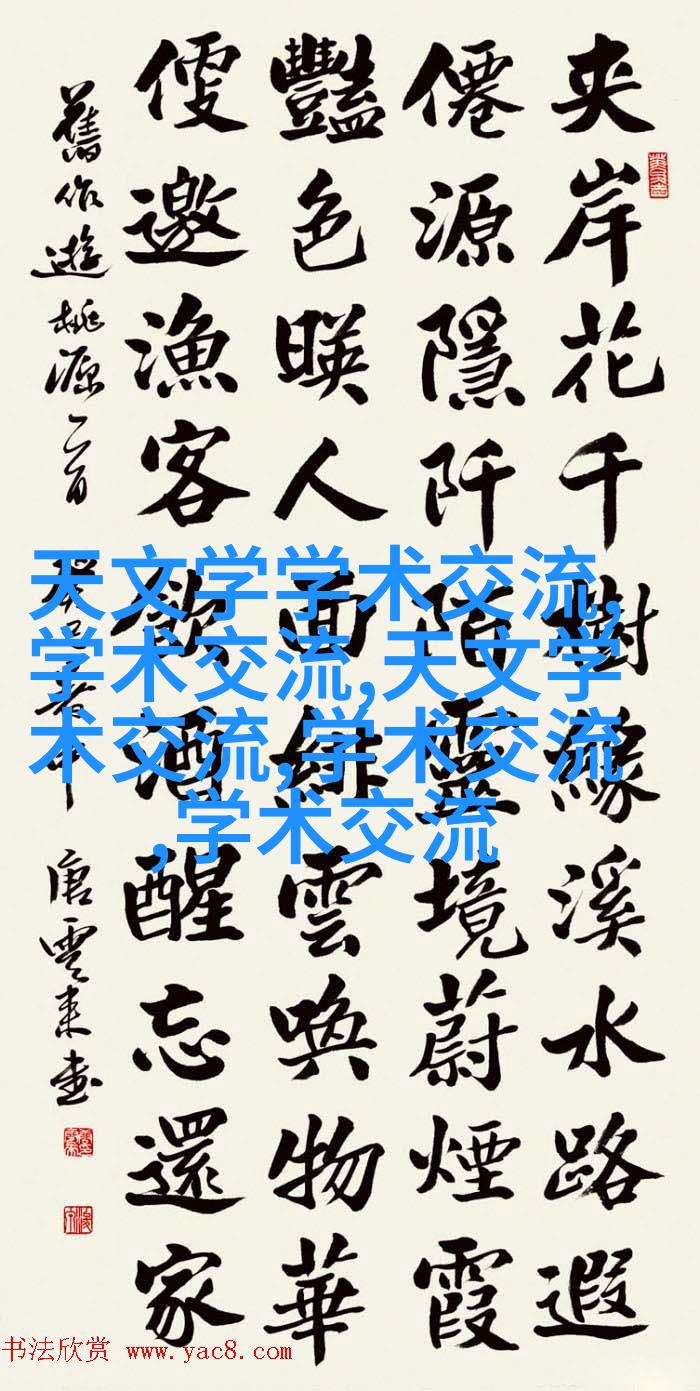 夹岸花千樹緣溪水路遐
僊源隱阡陌靈境蔚煙霞
豔色暎人面緋雲喚物華
便邀漁客飲酒醒忘還家
舊作遊桃源二首 癸巳 唐雲来書
天文学学术交流,
学术交流,天文学
术交流,学术交流
,学术交流
书法欣赏 www.yac8.com